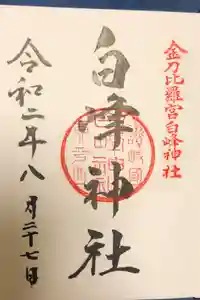 金刀比羅宮白峰神社
白峰神社
令和二年八月二十七日